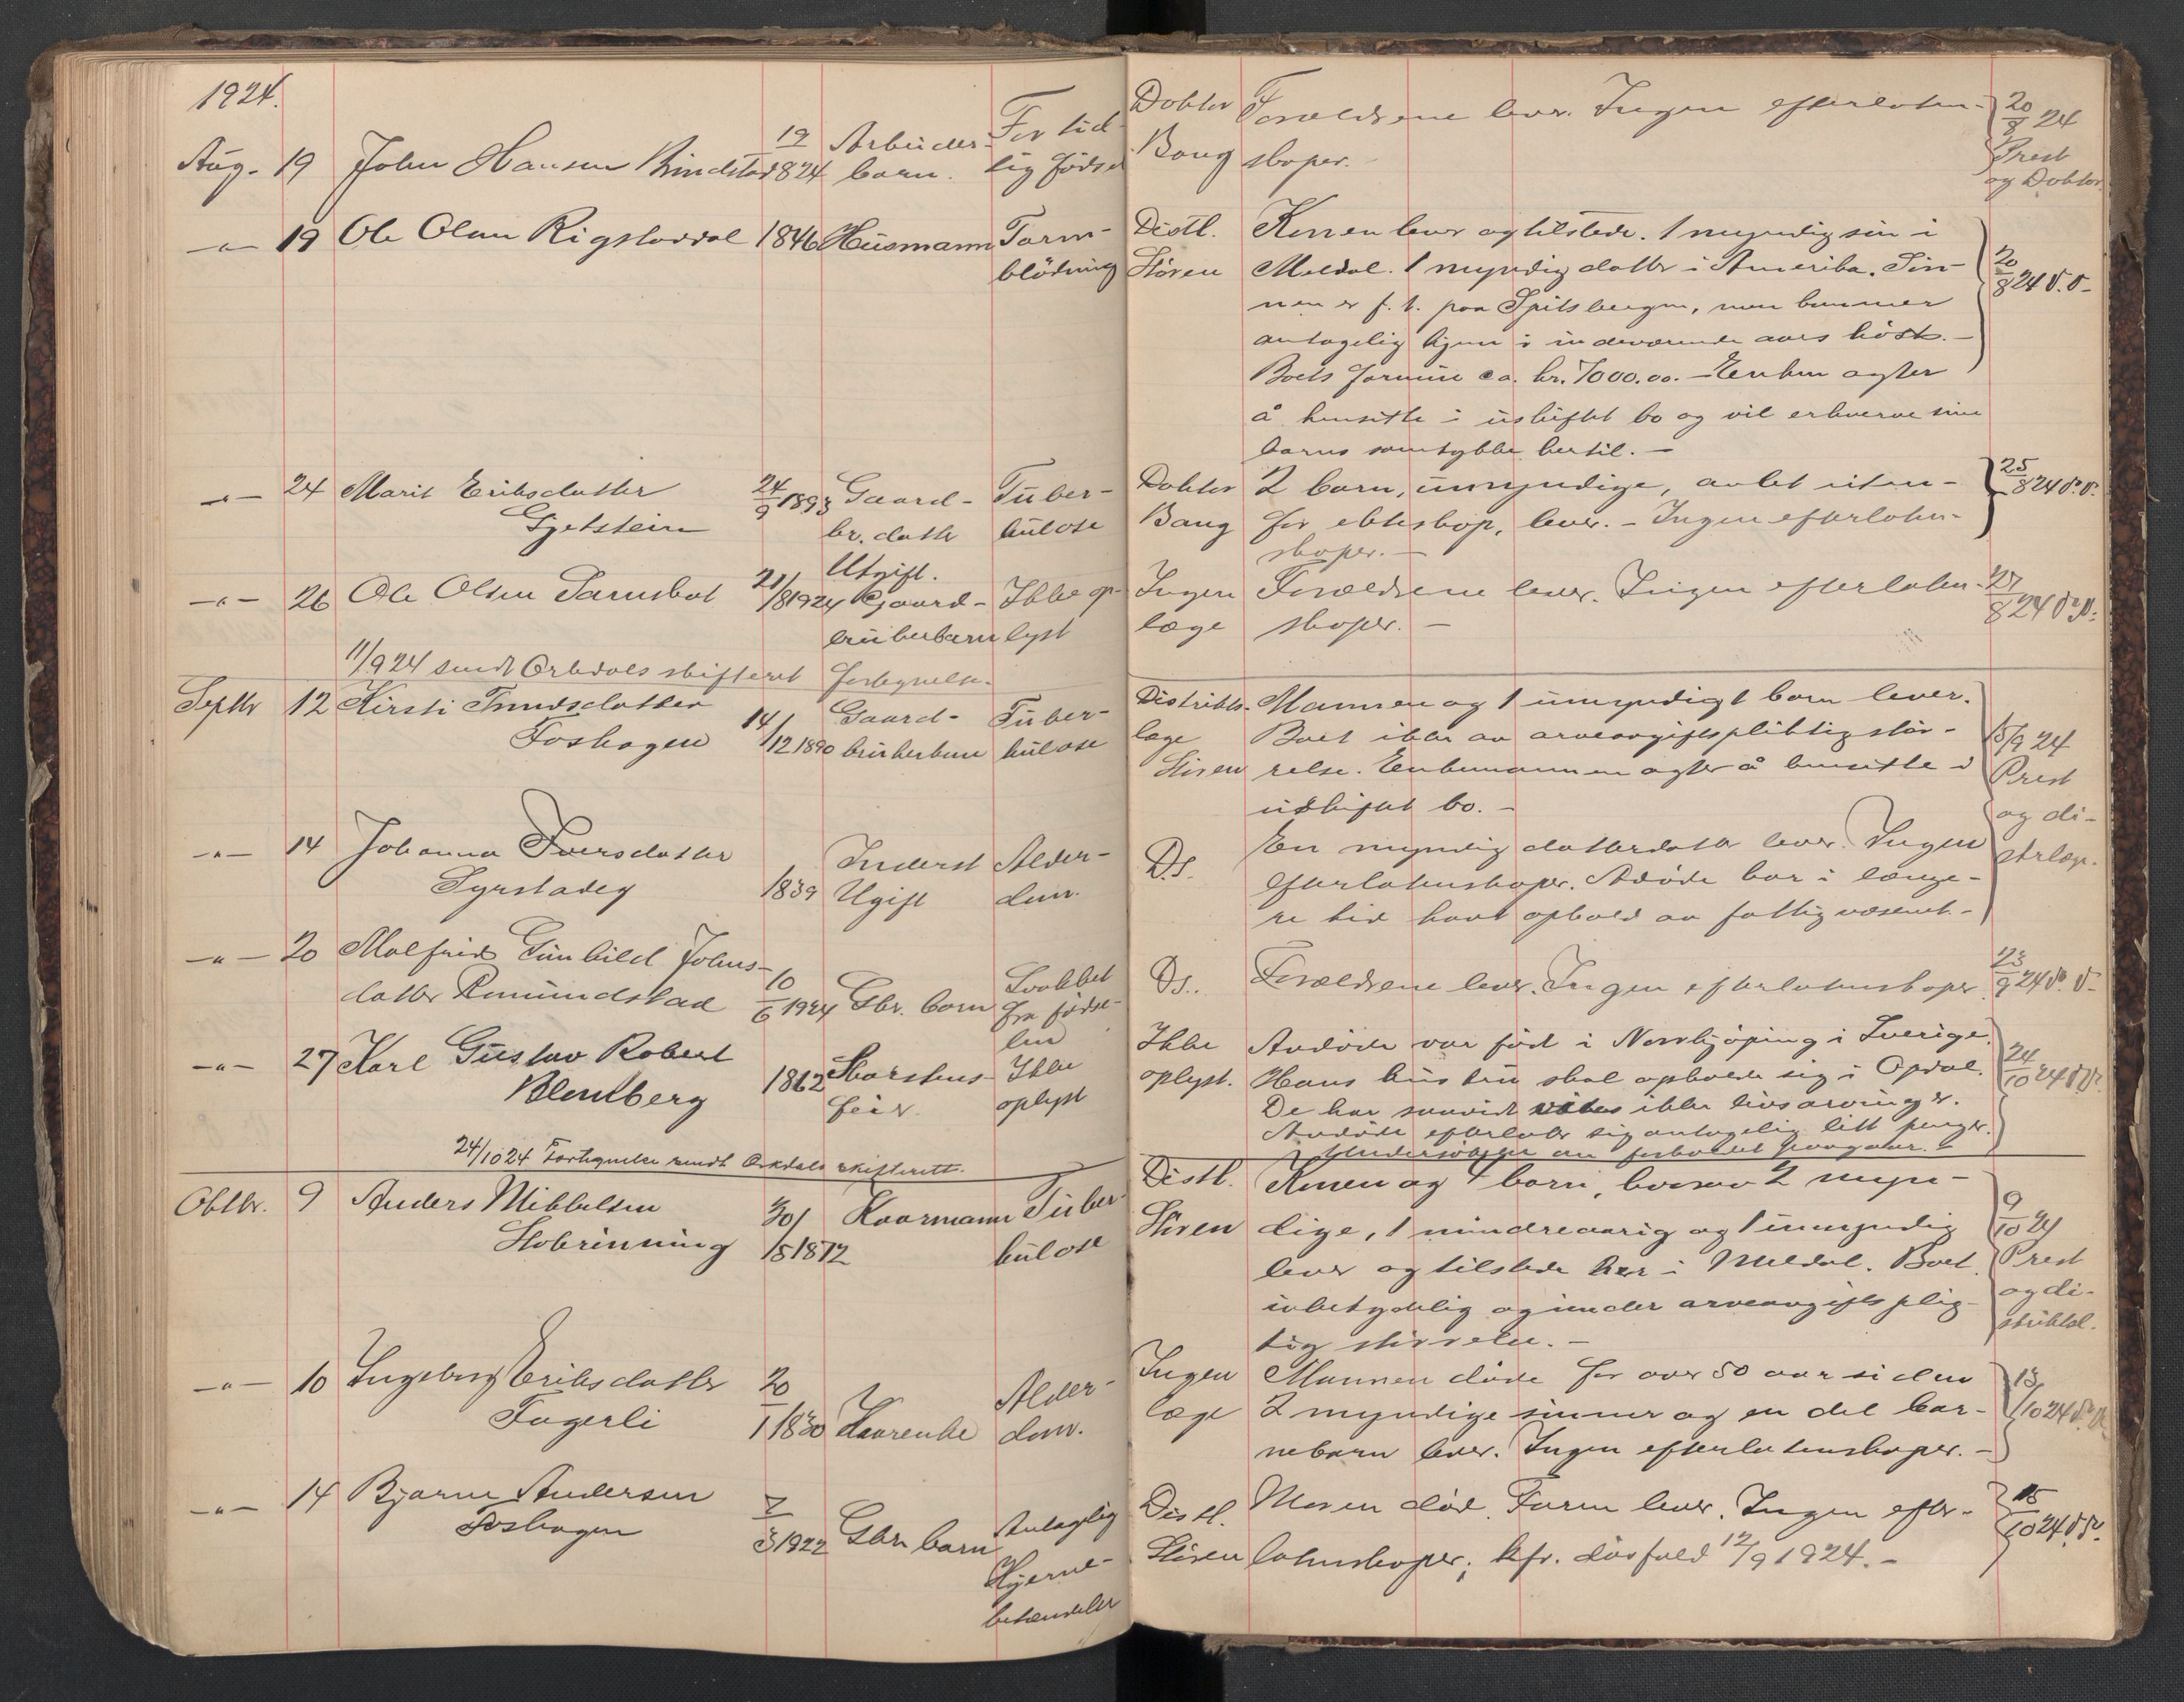 1924.
Aug. 19 John Hansen Rindstad 19/8 24 Arbeider- barn. For tid- lig födsel
Doktor Bang Forældrene lever. Ingen efterladen-
skaper.
20/8 24 Prest og Doktor.
-"- 19 Ole Olsen 1846 Husmann Tarm-
blödning
Distl. Stören Konen lever og tilstede. 1 myndig sön i
Meldal. 1 myndig datter i Amerika. Sön-
nen er f. t. paa Spitsbergen, men kommer
antagelig hjem i indeværende aars höst. -
Boets formue ca. kr. 7000.00. - Enken agter
å hensitte i uskiftet bo og vil erhverve sine
barns samtykke hertil. -
20/8 24 D. D.
-"- 24 Marit Eriksdatter
24/9 1893 Gaard-
br. datter
Ugift.
Tuber-
kulose
Doktor Bang 2 barn, umyndige, avlet uten-
for ekteskap, lever. - Ingen efterlaten-
skaper. -
25/8 24 D. D.
-"- 26 Ole Olsen 21/8 1924 Gaard-
brukerbarn
Ikke op-
lyst
Ingen læge Forældrene lever. Ingen efterlaten-
skaper. -
27/8 24 D. D.
11/9 24 sendt Orkdals skifteret fortegnelse.
Septbr 12 Kirsti Trondsdatter
Foshagen 14/12 1890 Gaard-
brukerkone
Tuber-
kulose
Distrikts-
læge
Stören
Mannen og 1 umyndigt barn lever.
Boet ikke av arveavgiftspliktig stör-
relse. Enkemannen agter å hensitte i
uskiftet bo. -
15/9 24
Prest
og di-
strlæge.
-"- 14 Johanna Iversdatter
Syrstadeg 1839 Inderst
Ugift
Alder-
dom.
D.s. En myndig datterdatter lever. Ingen
efterlatenskaper. Avdöde har i længe-
re tid havt ophold av fattigvæsenet. -
-"- 20 Malfrid Gunhild Johns-
datter Romundstad 10/6 1924 Gbr. barn Svakhet
fra födse-
len
Ds. Forældrene lever. Ingen efterlatenskaper
23/9 24 D. D.
-"- 27 Karl Gustav Robert
Blendberg 1862 Skorstens-
feier
Ikke
oplyst
Ikke
oplyst.
Avdöde var född i Norrkjöping i Sverige.
Hans hustru skal opholde sig i Opdal.
De har saavidt vites ikke livsarvinger.
Avdöde efterlater sig antagelig litt penger.
Undersökelse om forholdet paagaar.
24/10 24 D. D.
24/10 24 Fortegnelse sendt Orkdals skifterett.
Oktbr. 9 Anders Mikkelsen
30/5 1872 Kaarmann Tuber-
kulose
Distl.
Stören
Konen og 4 barn, hvorav 2 myn-
dige, 1 mindreaarig og 1 umyndig
lever og tilstede her i Meldal. Boet
ubetydelig og under arveavgiftsplig-
tig störrelse. -
9/10 24
Prest
og di-
striktsl.
-"- 10 Ingeborg Eriksdatter
Fagerli 20/1 1830 Kaarenke Alder-
dom.
Ingen
læge
Mannen döde for over 50 aar siden
2 myndige sönner og en del bar-
nebarn lever. Ingen efterlatenskaper. -
13/10 24 D. D.
-"- 14 Bjarne Andersen
Foshagen 7/3 1922 Gbr. barn Antaglig
Hjerne-
betændelse
Distl.
Stören
Moren död. Faren lever. Ingen efter-
latenskaper; kfr. dösfald 12/9 1924. -
15/10 24 D. D.